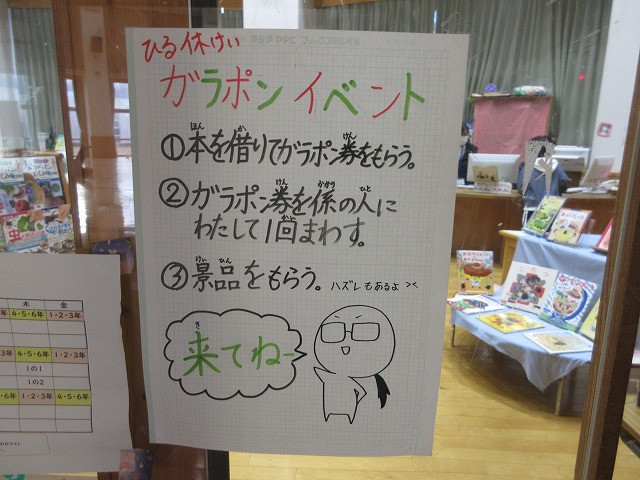 ひる休けい
ガラポンイベント
①本を借りてガラポン券をもらう。
ほん か けん
②ガラポン券を係の人に
けん かかり ひと
わたして1回まわす。
かい
③景品をもらう。ハズレもあるよ ><
けい ひん
来てねー
き
木 金
4・5・6年 1・2・3年
4・5・6年 1・2・3年
1の1
1の2
1・2・3年 4・5・6年